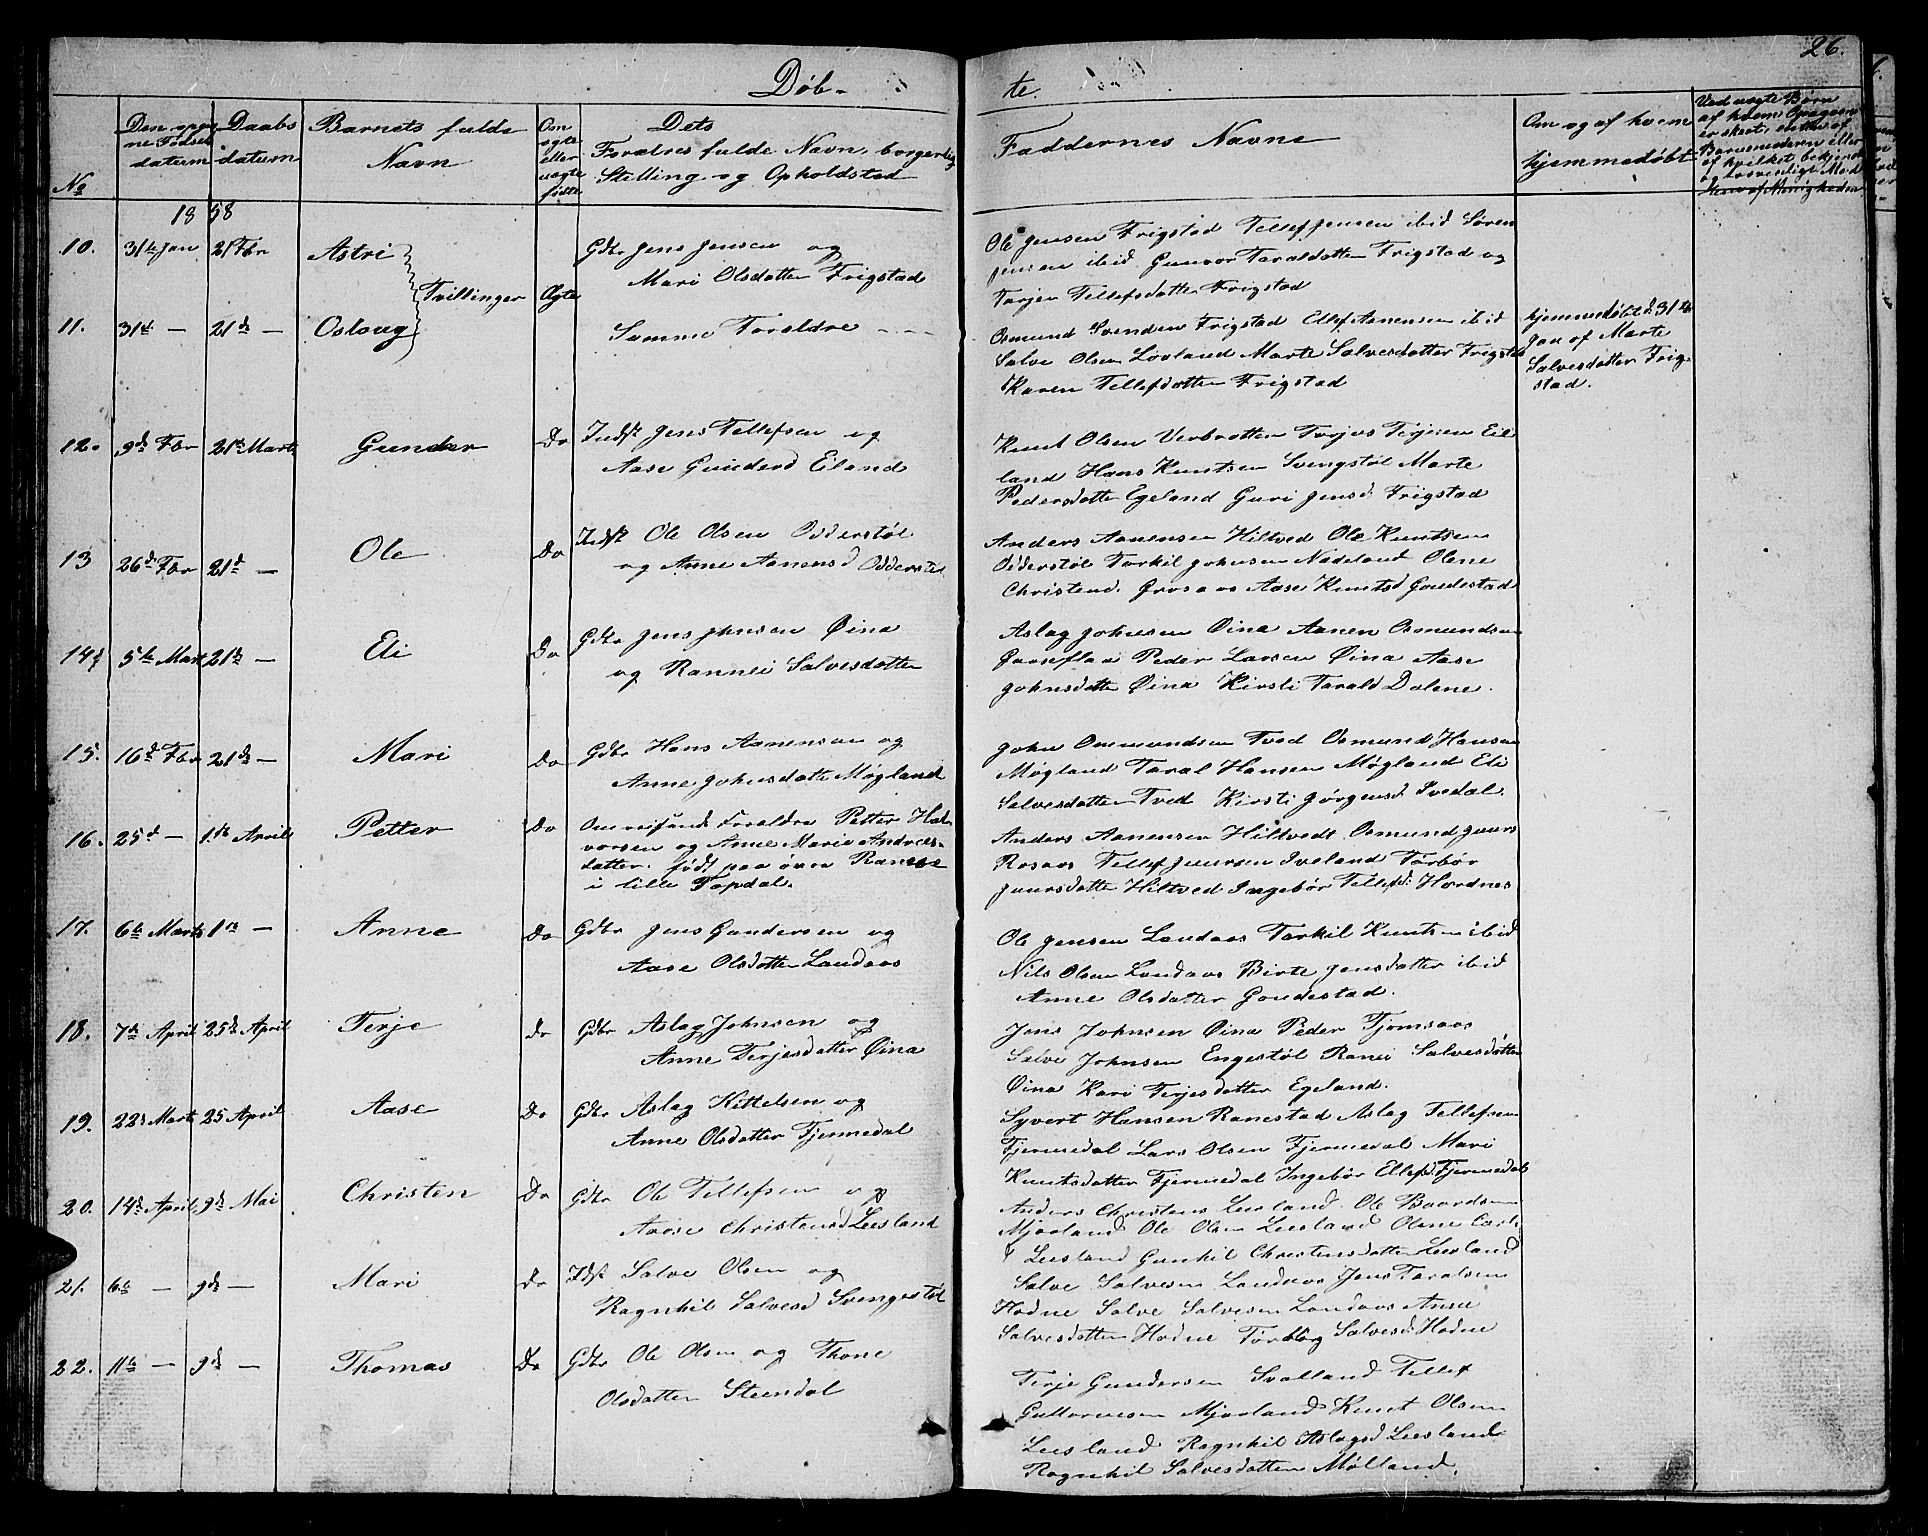 26.
Døb-
te.
No
Den opgivne Fødsels datum
Daabs datum
Barnets fulde Navn
Om ægte eller uægte fødte
Dets Forældres fulde Navn, borgerlig Stilling og Opholdstad
Faddernes Navne
Om og af hvem hjemmedøbt
Ved uægte Børn
1858
10. 31te Jan 21 Febr Astri
Gdbr Jens Jensen og
Mari Olsdatter Frigstad
Ole Jensen Frigstad Tellef Jensen ibid Søren
Jensen ibid Gunvor Taraldatter Frigstad og
Tarjer Tellefsdatter Frigstad
Tvillinger Ægte
11. 31te — 21de — Oslaug
Samme Forældre - - -
Osmund Svendsen Frigstad Ellef Aanensen ibid
Salve Olsen Lovland Marte Salvesdatter Frigstad
Karen Tellefsdatter Frigstad
hjemmedøbt d. 31te
Jan af Marte
Salvesdatter Frig-
stad.
12. 9de Febr 21de Marts Gunder Do
Indst Jens Tellefsen og
Aase Gunders Eiland
Knut Olsen Verbrotten Terjus Terjesen Ei
land Hans Knutsen Svengstøl Marte
Pedersdatter Egeland Guri Jensd. Frigstad
13 26de Febr 21de — Ole Do
Indst Ole Olsen Odderstøl
og Anne Aanensd Odderstøl
Anders Aanensen Hiltved Ole Knutsen
Odderstøl Torkil Johnsen Nadeland Olene
Christend. Grosaas Aase Knutsd Goudestad
14 5te Mart 21de — Eli Do
Gdbr Jens Johnsen Øina
og Rannei Salvesdatter
Aslag Johnsen Øina Aanen Osmundsen
Gaaseflaa Peder Larsen Øina Aase
Johnsdatter Øina Kirsti Tarald Dalene.
15. 16de Febr 21de — Mari Do
Gdbr Hans Aanensen og
Anne Johnsdatte Møgland
John Osmundsen Tved Osmund Hansen
Møgland Taral Hansen Møgland Eli
Salvesdatter Tved Kirsti Jørgensd. Ivedal.
16. 25de — 1ste April Petter Do
Omreisende Forældre Petter Hal-
vorsen og Anne Marie Andreas-
datter. født paa øvre Ramse
i lille Topdal.
Anders Aanensen Hiltvedt Osmund Jaars
Rosaas Tellef Jensen Iveland Torbør
Jaarsdatter Hiltved Ingebør Tellefsd. Hordnes
17. 6te Marts 1ste — Anne Do
Gdbr Jens Gundersen og
Aase Olsdatter Landaas
Ole Jensen Landaas Torkil Knutsen ibid
Nils Olsen Landaas Birte Jensdatter ibid
Anne Olsdatter Goudestad.
18. 7de April 25de April Terje Do
Gdbr Aslag Johnsen og
Anne Terjesdatter Øina
Jens Johnsen Øina Peder Tjomsaas
Salve Johnsen Engestøl Ranei Salvesdatter
Øina Kari Terjesdatter Egeland.
19. 22de Marts 25 April Aase Do
Gdbr Aslag Kittelsen og
Anne Olsdatter Fjermedal
Syvert Hansen Ranestad Aslag Tellefsen
Fjermedal Lars Olsen Fjermedal Mari
Knutsdatter Fjermedal Ingebør Ellefsd. Fjermedal
20. 14de April 9de Mai Christen Do
Gdbr Ole Tellefsen og
Aase Christensd Leesland
Anders Christens Leesland Ole Baardsen
Mjaaland Ole Olsen Leesland Olene Carls
d Leesland Gunhil Christensdatter Leesland
21. 6te — 9de — Mari Do
Idst Salve Olsen og
Ragnhil Salvesd Svengestøl
Salve Salvesen Landaas Jens Taralsen
Hodne Salve Salvesen Landaas Anne
Salvesdatter Hodne Torborg Salvesd. Hodne
22. 11te — 9de — Thomas Do
Gdbr Ole Olsen og Thone
Olsdatter Steendal
Terje Gundersen Svalland Tellef
Guttormsen Mjaaland Knut Olsen
Leesland Ragnhil Aslagsd Leesland
Ragnhil Salvesdatter Mølland.